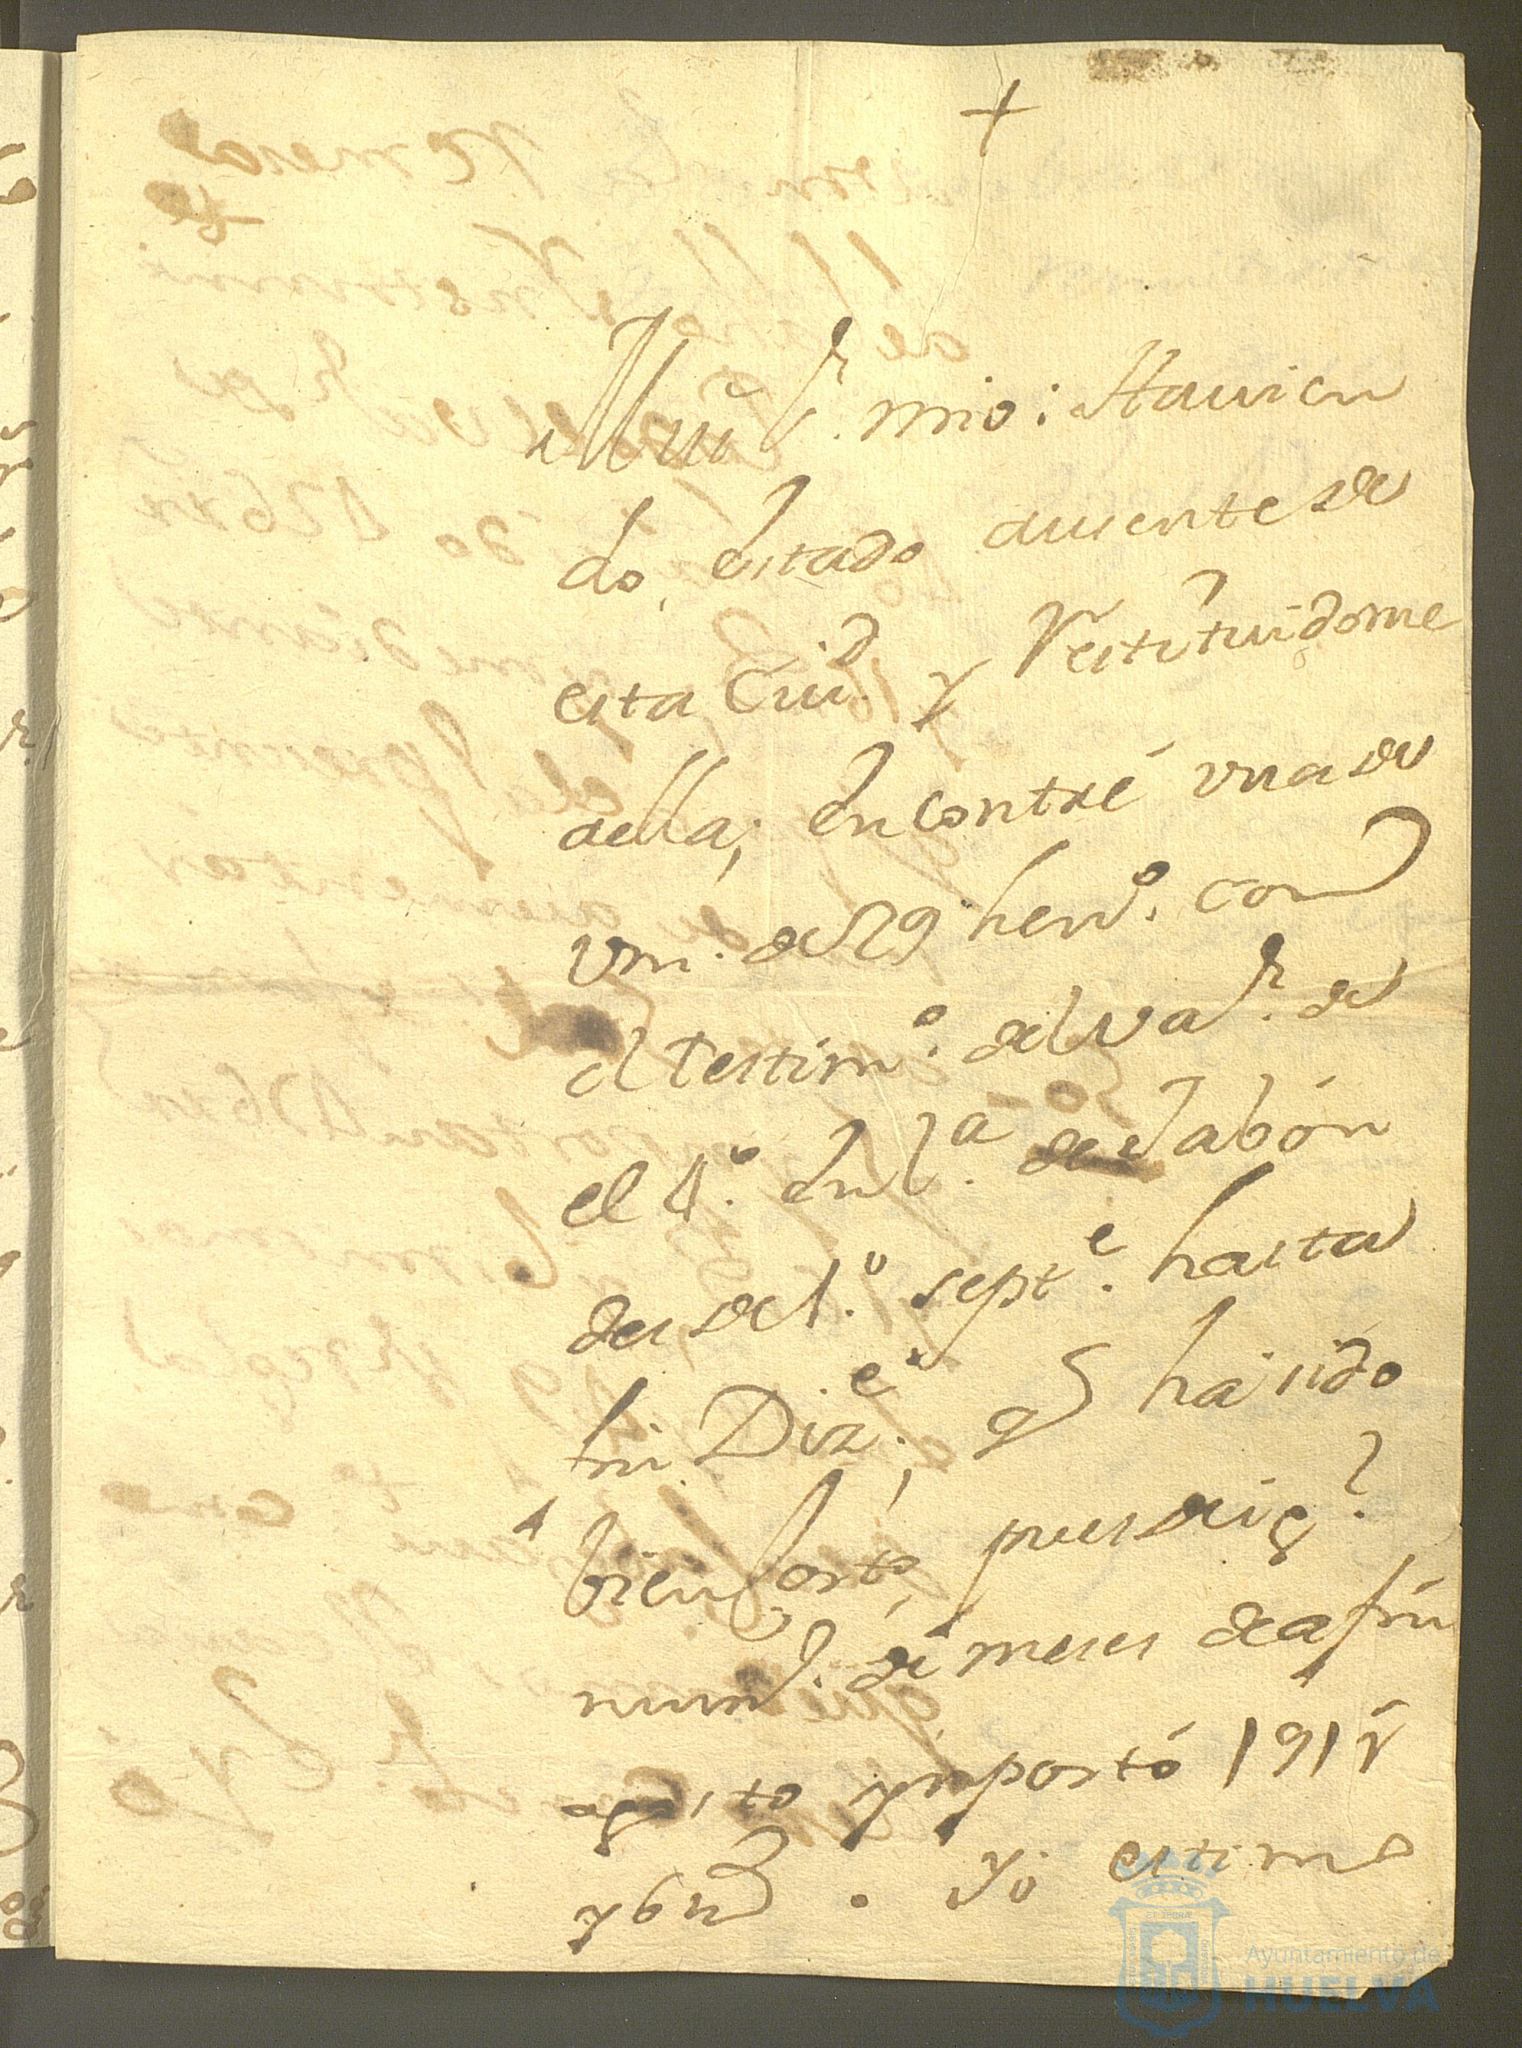 +
Mui Sr. mio: Havien
do, estado aucente de
esta Ciud. y restituidome
aella; encontré una de
vm. de 29 hen.o con
el testim.o del va.r de
el 4.o en l.a de Jabón
desde 1.o sept.e hasta
fin Diz.e, q ha sido
bien corto, pues
num.d de meses de a fin
agosto ymportó 1911 r
y 6 m. Yo estimo
Ayuntamiento de
HUELVA